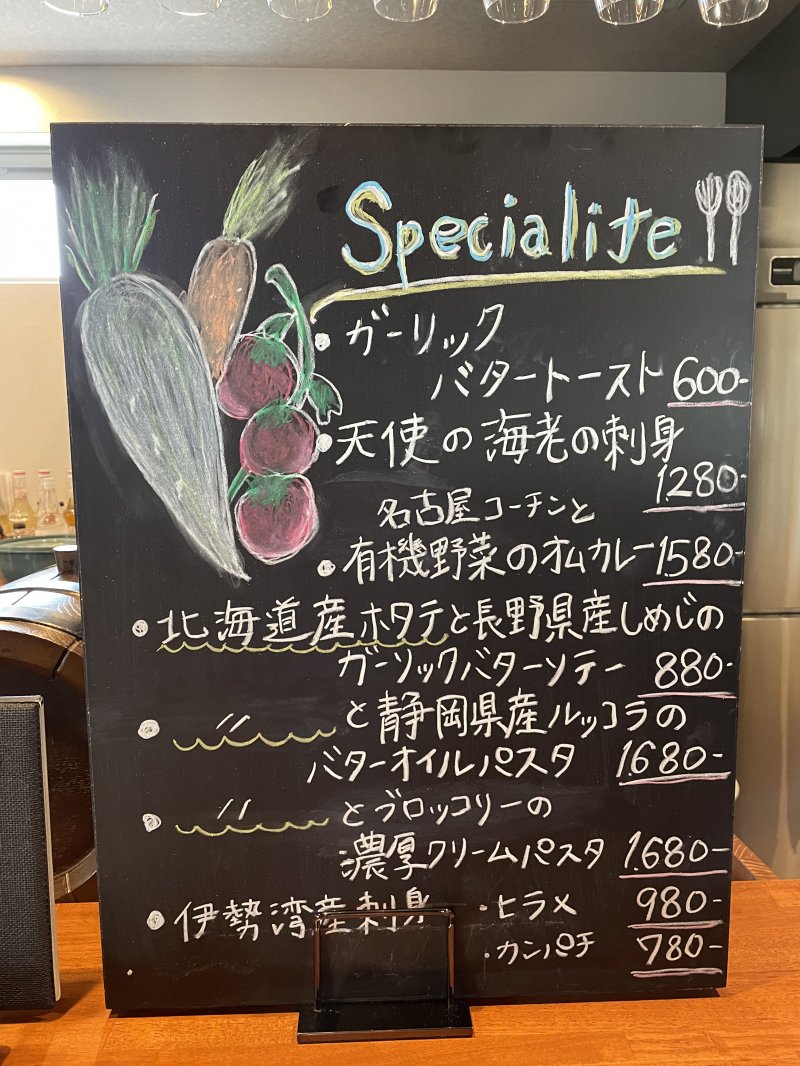 Specialite
・ガーリック
バタートースト 600-
・天使の海老の刺身
1280-
名古屋コーチンと
・有機野菜のオムカレー 1,580-
・北海道産ホタテと長野県産しめじの
ガーリックバターソテー 880-
・ 〃 と静岡県産ルッコラの
バターオイルパスタ 1,680-
・ 〃 とブロッコリーの
濃厚クリームパスタ 1,680-
・伊勢湾産刺身 ・ヒラメ 980-
・カンパチ 780-